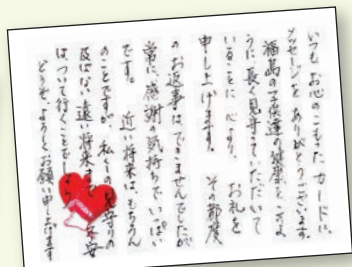 いつもお心のこもったカードに、
メッセージをありがとうございます。
福島の子供達の健康を、きょ
うに、長く見守っていただいて
いることに心より、お礼を
申し上げます。その都度
のお返事はできませんでしたが
常に、感謝の気持ちでいっぱい
です。近い将来は、もちろん
のことですが、私たちの見守りの
及ばない遠い将来まで、不安
は、ついて行くことでしょう。
どうぞ、よろしくお願い申し上げます